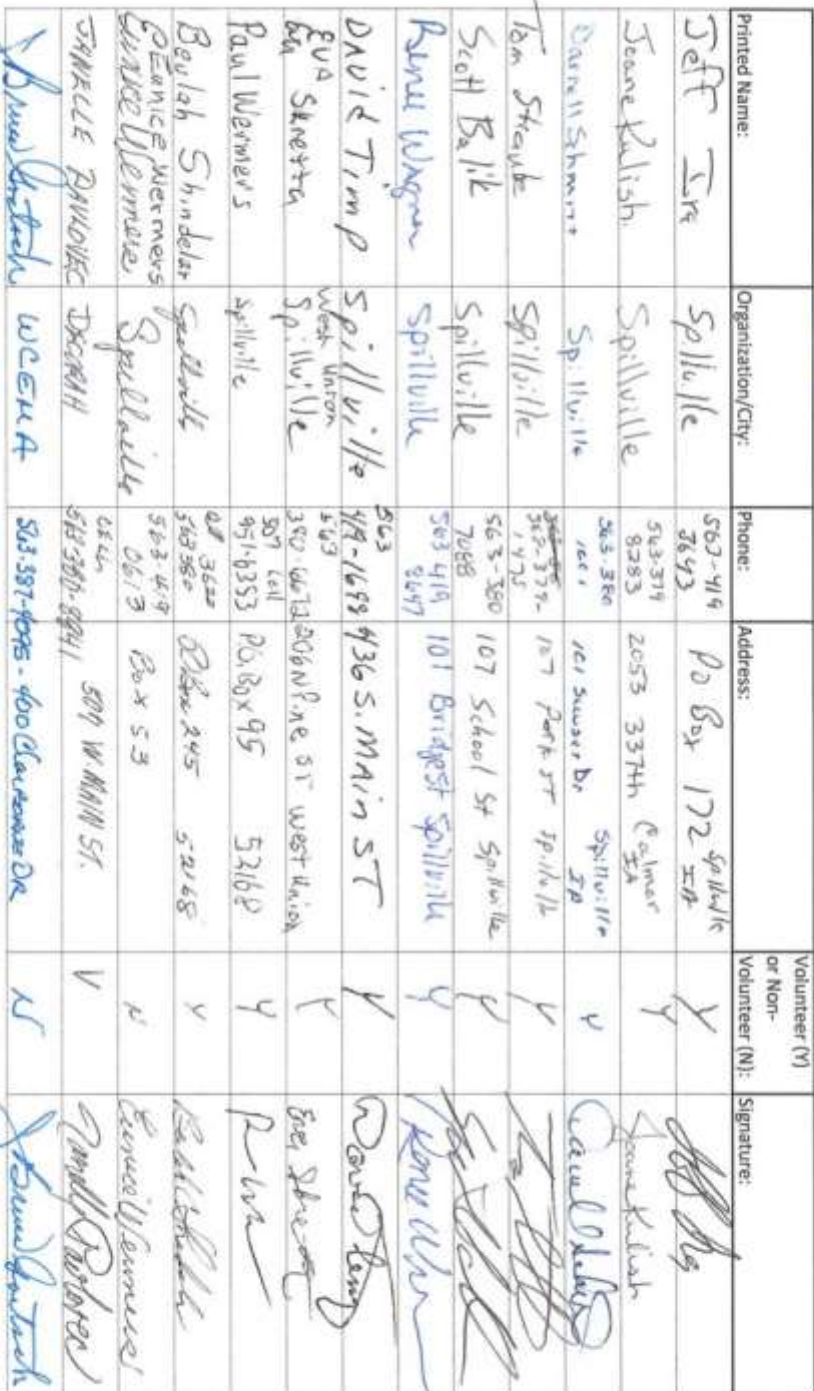 Printed Name: Organization/City: Phone: Address: Volunteer (Y) or Non-Volunteer (N): Signature:
Jeff Ira Spillville 563-419 3643 PO Box 172 Spillville IA Y
Jeane Kulish Spillville 563-379 8283 2053 337th Calmar IA Y Jeane Kulish
Darrell Schmitt Spillville 563-380 Dr Spillville IA Y
Tom Straube Spillville 1475 107 Park ST Spillville Y
Scott Balik Spillville 563-380 7088 107 School St Spillville Y
Renee Wagner Spillville 563 419 101 Bridge St Spillville Y
David Timp Spillville 563 419-1698 436 S. MAin ST Y
EVA Skretta West Union Spillville 563 206 N Pine ST West Union Y
Paul Wermers Spillville 507 Cell 951-6353 P.O. Box 95 52168 Y
Beulah Shindelar Spillville 563 380 3620 Box 245 52168 Y
Eunice Wermers Eunice Wermers Spillville 563-419 0673 Box 53 N Eunice Wermers
JANELLE PAVLOVEC DECORAH 509 W. MAIN ST. V Janelle Pavlovec
WCEMA 563-387-4095 - 400 Claiborne DR N